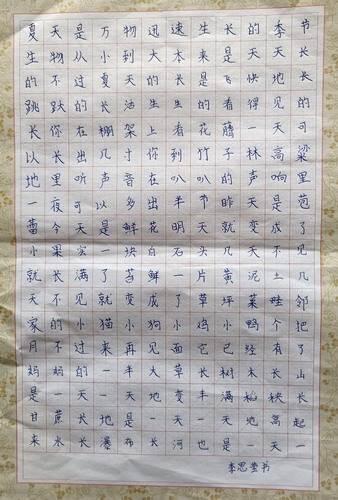 夏天是万物迅速生长的季节
生物从小到大本来是天天长
的不过夏天的长是飞快地长
跳跃的长活生生的看得见的
长你在棚架上看花藤一天可
以长出几寸你到竹子林高粱
地里听声音在叭叭的声响里
一夜可以多出半节昨天是苞
蕾今天是鲜花明天就变成了
小果实一块白石头几天不见
就长满了苔藓一片黄泥土几
天不见就变成了草坪菜畦邻
家的小猫小狗小鸡小鸭个把
月不过来再见面它已经有了
妈妈的一半大草长树木长山
是一天一天地变丰满稻秧长
甘蔗长地是一天一天地高起
来水长瀑布长河也是一天一
李思莹书